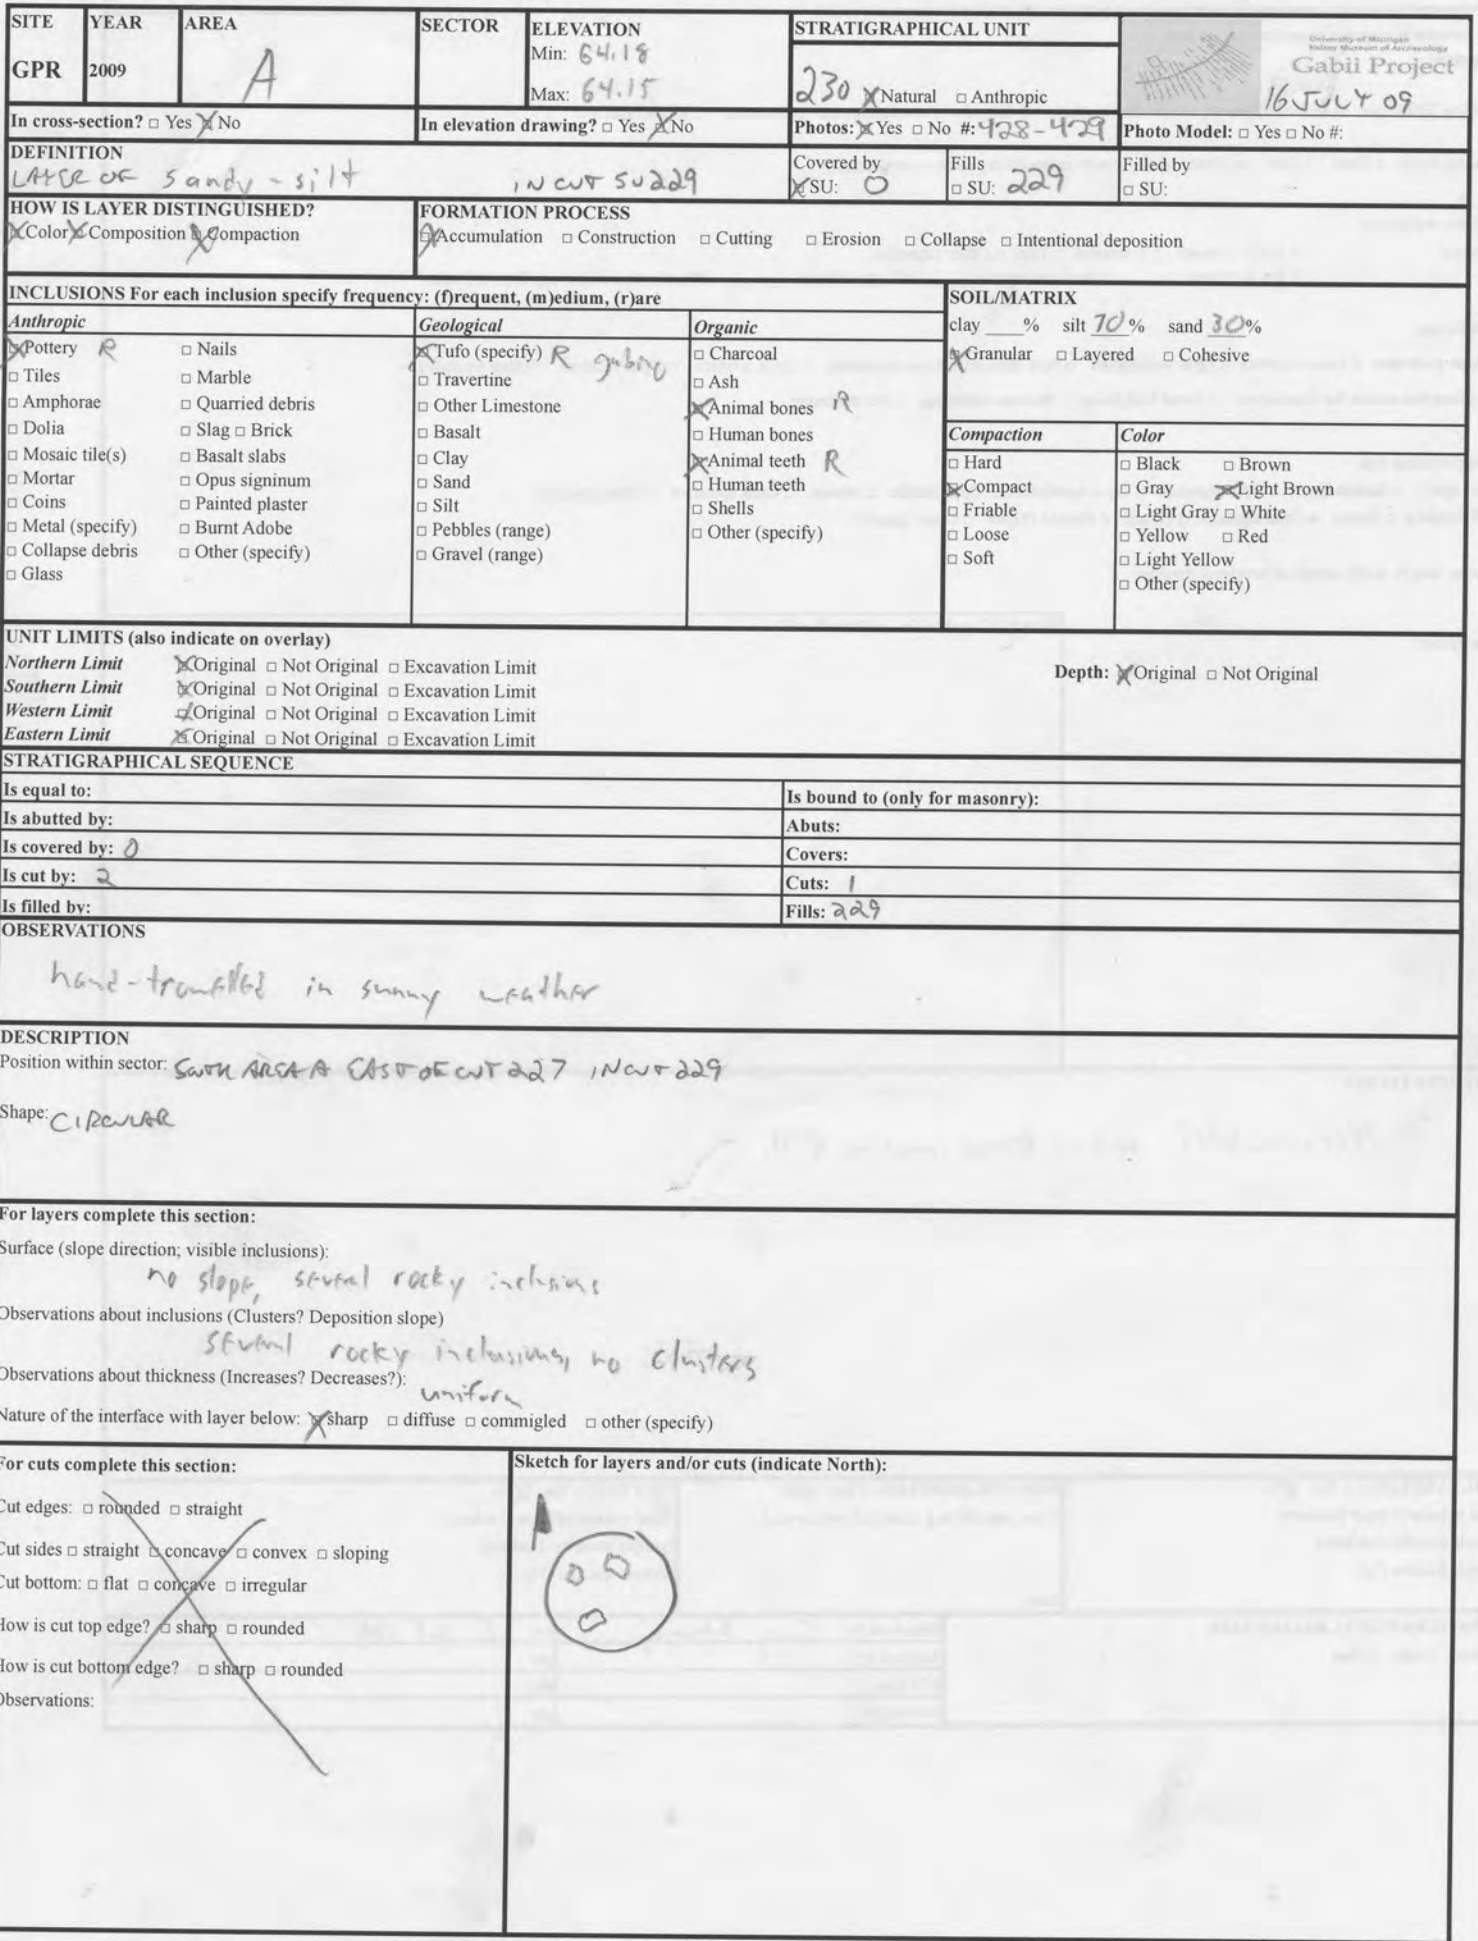 SITE YEAR AREA SECTOR ELEVATION STRATIGRAPHICAL UNIT
University of Michigan
Kelsey Museum of Archaeology
Gabii Project
GPR 2009 A Min: 64.18
Max: 64.15 230 Natural □ Anthropic 16 JULY 09
In cross-section? □ Yes No In elevation drawing? □ Yes No Photos: Yes □ No #: 428-429 Photo Model: □ Yes □ No #:
DEFINITION Covered by Fills Filled by
LAYER OF sandy-silt IN CUT SU229 SU: 0 □ SU: 229 □ SU:
HOW IS LAYER DISTINGUISHED? FORMATION PROCESS
Color Composition Compaction Accumulation □ Construction □ Cutting □ Erosion □ Collapse □ Intentional deposition
INCLUSIONS For each inclusion specify frequency: (f)requent, (m)edium, (r)are
Anthropic
Pottery R □ Nails
□ Tiles □ Marble
□ Amphorae □ Quarried debris
□ Dolia □ Slag □ Brick
□ Mosaic tile(s) □ Basalt slabs
□ Mortar □ Opus signinum
□ Coins □ Painted plaster
□ Metal (specify) □ Burnt Adobe
□ Collapse debris □ Other (specify)
□ Glass
Geological
Tufo (specify) R gabino
□ Travertine
□ Other Limestone
□ Basalt
□ Clay
□ Sand
□ Silt
□ Pebbles (range)
□ Gravel (range)
Organic
□ Charcoal
□ Ash
Animal bones R
□ Human bones
Animal teeth R
□ Human teeth
□ Shells
□ Other (specify)
SOIL/MATRIX
clay ____% silt 70% sand 30%
Granular □ Layered □ Cohesive
Compaction
□ Hard
Compact
□ Friable
□ Loose
□ Soft
Color
□ Black □ Brown
□ Gray Light Brown
□ Light Gray □ White
□ Yellow □ Red
□ Light Yellow
□ Other (specify)
UNIT LIMITS (also indicate on overlay)
Northern Limit Original □ Not Original □ Excavation Limit Depth: Original □ Not Original
Southern Limit Original □ Not Original □ Excavation Limit
Western Limit Original □ Not Original □ Excavation Limit
Eastern Limit Original □ Not Original □ Excavation Limit
STRATIGRAPHICAL SEQUENCE
Is equal to: Is bound to (only for masonry):
Is abutted by: Abuts:
Is covered by: 0 Covers:
Is cut by: 2 Cuts: 1
Is filled by: Fills: 229
OBSERVATIONS
hand-trowelled in sunny weather
DESCRIPTION
Position within sector: SOUTH AREA A EAST OF CUT 227 IN CUT 229
Shape: CIRCULAR
For layers complete this section:
Surface (slope direction; visible inclusions):
no slope, several rocky inclusions
Observations about inclusions (Clusters? Deposition slope)
several rocky inclusions, no clusters
Observations about thickness (Increases? Decreases?):
uniform
Nature of the interface with layer below: sharp □ diffuse □ commigled □ other (specify)
For cuts complete this section:
Cut edges: □ rounded □ straight
Cut sides □ straight □ concave □ convex □ sloping
Cut bottom: □ flat □ concave □ irregular
How is cut top edge? □ sharp □ rounded
How is cut bottom edge? □ sharp □ rounded
Observations:
Sketch for layers and/or cuts (indicate North):